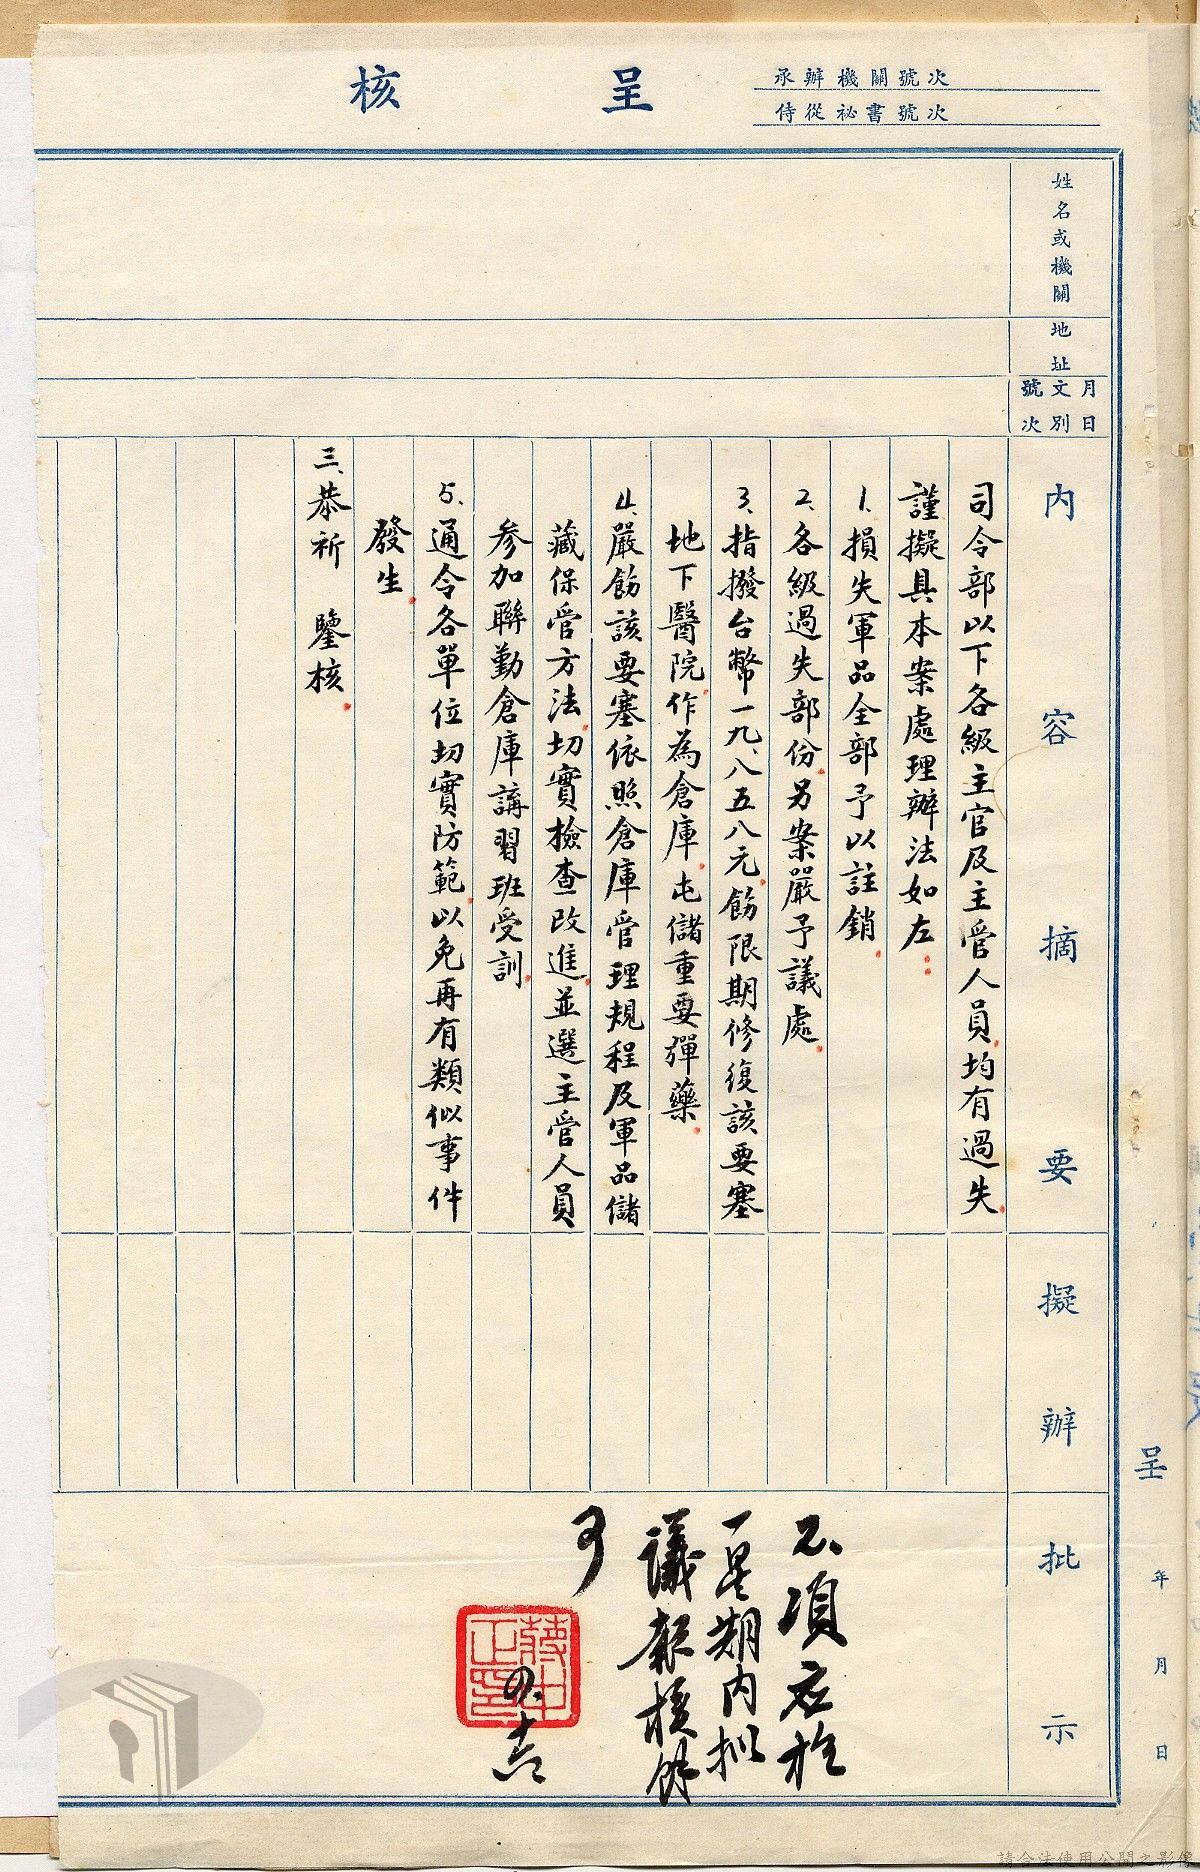 呈核
承辦機關號次
侍從祕書號次
姓名或機關
地址
月日
文別
號次
內容摘要
擬辦
批示
司令部以下各級主官及主管人員均有過失
謹擬具本案處理辦法如左：
1、損失軍品全部予以註銷
2、各級過失部份另案嚴予議處
3、指撥台幣一九、八五八元飭限期修復該要塞
地下醫院作為倉庫屯儲重要彈藥
4、嚴飭該要塞依照倉庫管理規程及軍品儲
藏保管方法切實檢查改進並選主管人員
參加聯勤倉庫講習班受訓
5、通令各單位切實防範以免再有類似事件
發生
三、恭祈 鑒核
2、項應於
一星期內擬
議報核餘
可
蔣中正印
呈 年 月 日
請合法使用公開之影像